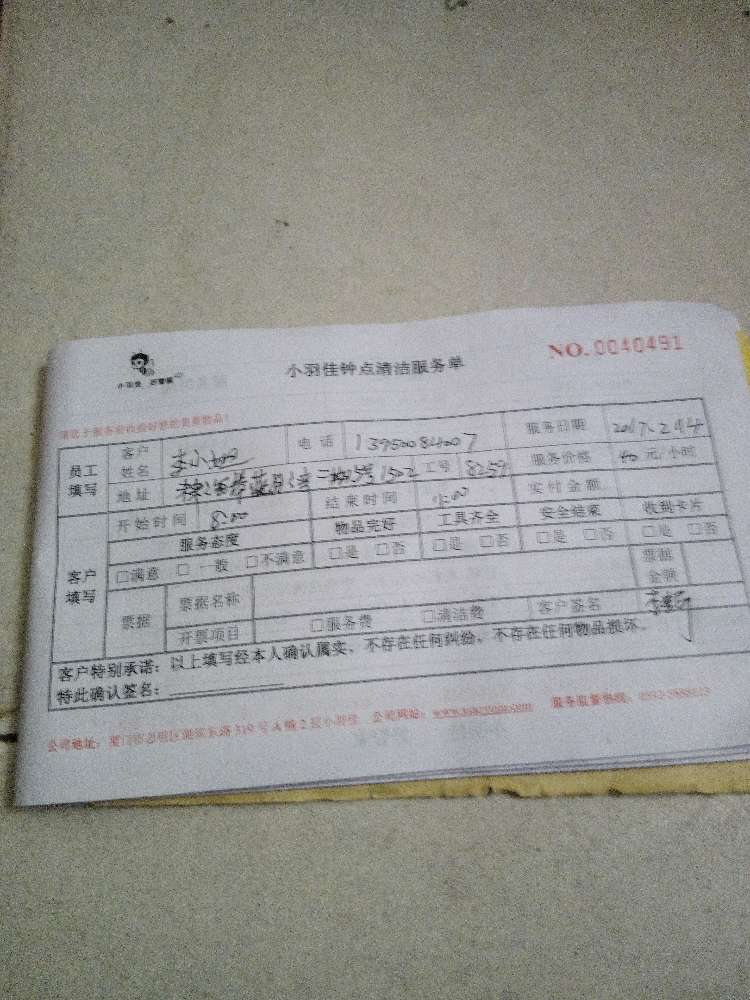 小羽佳钟点清洁服务单
NO.0040491
员工填写 客户姓名 李小如 电话 13950084007 服务日期 2017.2.14
地址 二期 1502 工号 8259 服务价格 40 元/小时
开始时间 8:00 结束时间 12:00 实付金额
客户填写 服务态度 物品完好 工具齐全 安全结束 收到卡片
□满意 □一般 □不满意 □是 □否 □是 □否 □是 □否 □是 □否
票据 票据名称 票面金额
开票项目 □服务费 □清洁费 客户签名
客户特别承诺：以上填写经本人确认属实，不存在任何纠纷，不存在任何物品损坏.
特此确认签名：
公司地址：厦门市思明区湖滨东路319号A幢2层小羽佳 公司网站： 服务监督热线：